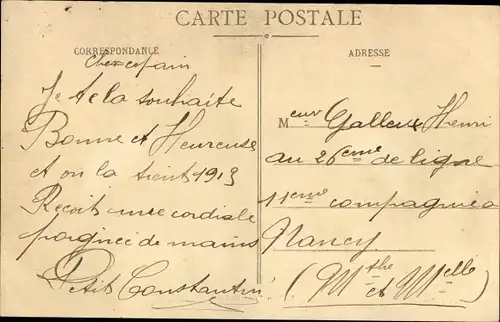 CARTE POSTALE
CORRESPONDANCE
Cher copain
Je te la souhaite
Bonne et Heureuse
et on la tient 1913
Reçoit une cordiale
poignée de mains
Petit Constantin
ADRESSE
Meur Galleux Henri
au 26eme de ligne
11eme compagnie
Nancy
(Mthe et Melle)